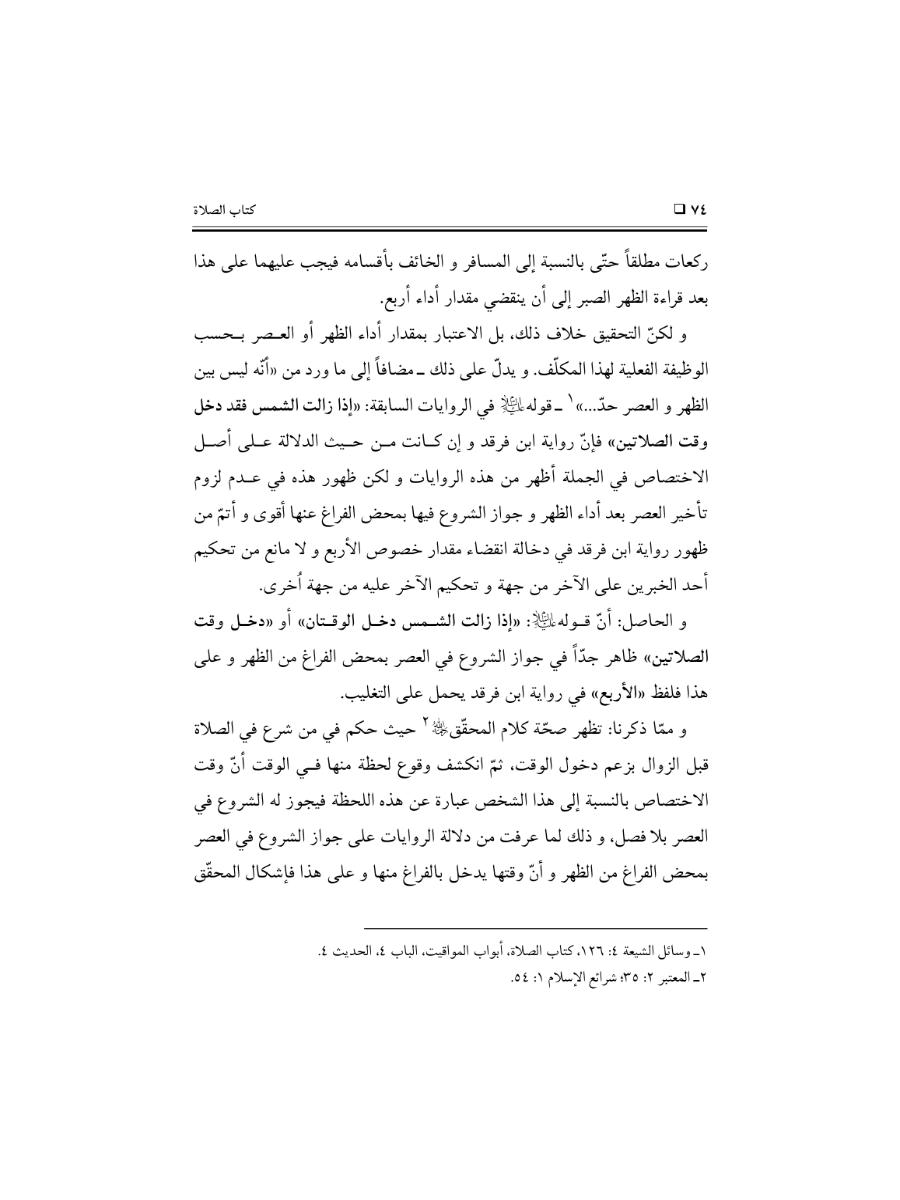 ٧٤ ❑ كتاب الصلاة
ركعات مطلقاً حتّى بالنسبة إلى المسافر و الخائف بأقسامه فيجب عليهما على هذا
بعد قراءة الظهر الصبر إلى أن ينقضي مقدار أداء أربع.
و لكنّ التحقيق خلاف ذلك، بل الاعتبار بمقدار أداء الظهر أو العـصر بـحسب
الوظيفة الفعلية لهذا المكلّف. و يدلّ على ذلك ـ مضافاً إلى ما ورد من «أنّه ليس بين
الظهر و العصر حدّ...»١ ـ قوله عليه السلام في الروايات السابقة: «إذا زالت الشمس فقد دخل
وقت الصلاتين» فإنّ رواية ابن فرقد و إن كـانت مـن حـيث الدلالة عـلى أصـل
الاختصاص في الجملة أظهر من هذه الروايات و لكن ظهور هذه في عـدم لزوم
تأخير العصر بعد أداء الظهر و جواز الشروع فيها بمحض الفراغ عنها أقوى و أتمّ من
ظهور رواية ابن فرقد في دخالة انقضاء مقدار خصوص الأربع و لا مانع من تحكيم
أحد الخبرين على الآخر من جهة و تحكيم الآخر عليه من جهة اُخرى.
و الحاصل: أنّ قـوله عليه السلام: «إذا زالت الشـمس دخـل الوقـتان» أو «دخـل وقت
الصلاتين» ظاهر جدّاً في جواز الشروع في العصر بمحض الفراغ من الظهر و على
هذا فلفظ «الأربع» في رواية ابن فرقد يحمل على التغليب.
و ممّا ذكرنا: تظهر صحّة كلام المحقّق رحمه الله٢ حيث حكم في من شرع في الصلاة
قبل الزوال بزعم دخول الوقت، ثمّ انكشف وقوع لحظة منها فـي الوقت أنّ وقت
الاختصاص بالنسبة إلى هذا الشخص عبارة عن هذه اللحظة فيجوز له الشروع في
العصر بلا فصل، و ذلك لما عرفت من دلالة الروايات على جواز الشروع في العصر
بمحض الفراغ من الظهر و أنّ وقتها يدخل بالفراغ منها و على هذا فإشكال المحقّق
١ـ وسائل الشيعة ٤: ١٢٦، كتاب الصلاة، أبواب المواقيت، الباب ٤، الحديث ٤.
٢ـ المعتبر ٢: ٣٥؛ شرائع الإسلام ١: ٥٤.